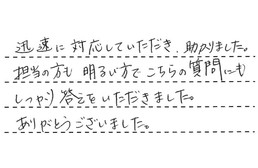 迅速に対応していただき、助かりました。
担当の方も明るい方でこちらの質問にも
しっかり答えをいただきました。
ありがとうございました。